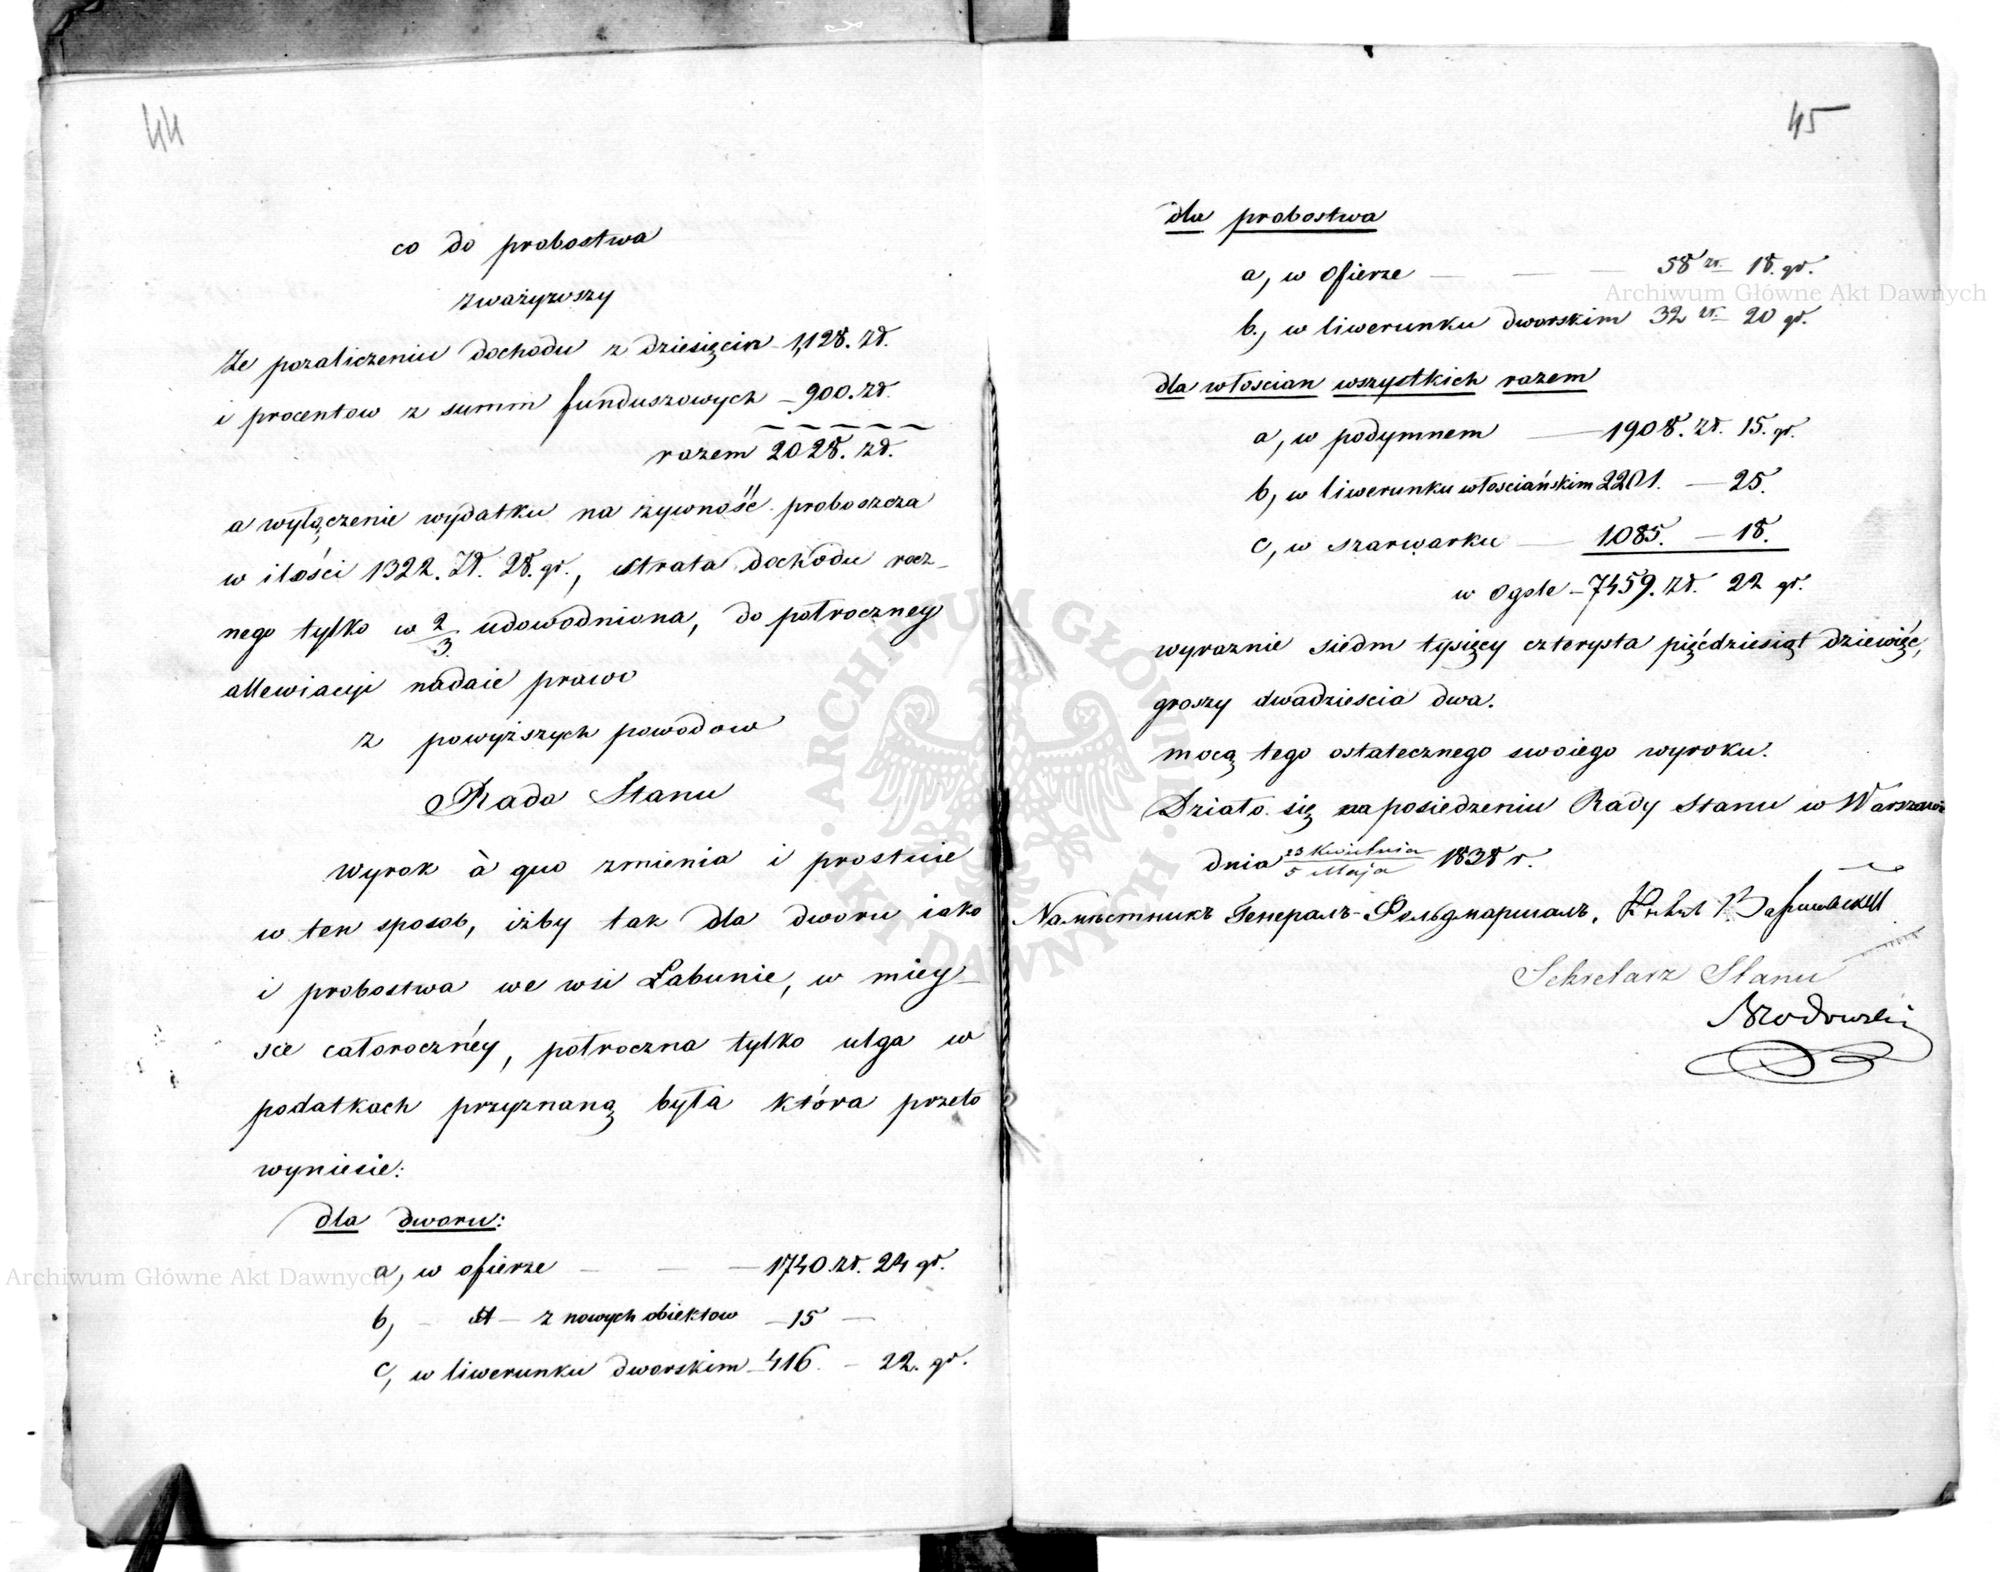 44
co do probostwa
zważywszy
że pozaliczeniu dochodu z dziesięcin 1,128. zł.
i procentow z summ funduszowych – 900. zł.
razem 2028. zł.
a wyłączenie wydatku na żywność proboszcza
w ilości 1322. zł. 28. gr., strata dochodu rocz-
nego tylko w 2/3 udowodniona, do połroczney
allewiacyi nadaie prawo
z powyższych powodow
Rada Stanu
wyrok à quo zmienia i prostuie
w ten sposob, iżby tak dla dworu iako
i probostwa we wsi Łabunie, w miey-
sce całoroczney, połroczna tylko ulga w
podatkach przyznaną była która przeto
wyniesie:
dla dworu:
a, w ofierze — — — 1740. zł. 24 gr.
b, – dt – z nowych obiektow – 15 —
c, w liwerunku dworskim – 416. – 22. gr.
45
dla probostwa
a, w ofierze — — — 58 zł. 18. gr.
b, w liwerunku dworskim 32 zł. 20 gr.
dla włoscian wszystkich razem
a, w podymnem — 1908. zł. 15. gr.
b, w liwerunku włościańskim 2201. — 25.
c, w szarwarku — 1085. — 18.
w ogole – 7459. zł. 22 gr.
wyraznie siedm tysięcy czterysta pięćdziesiąt dziewięć,
groszy dwadziescia dwa.
mocą tego ostatecznego swoiego wyroku.
Działo się na posiedzeniu Rady Stanu w Warszawie
dnia 23 Kwietnia / 5 Maja 1838 r.
Намѣстникъ Генералъ-Фельдмаршалъ,
Sekretarz Stanu
Brodowski
Archiwum Główne Akt Dawnych
Archiwum Główne Akt Dawnych
· ARCHIWUM GŁÓWNE · AKT DAWNYCH